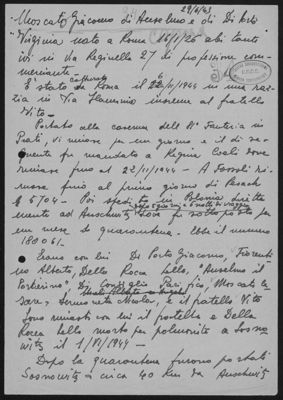 29/6/43
Moscato Giacomo di Anselmo e di Di Porto
Virginia nato a Roma 16/1/26 abitante
ivi in via Reginella 27 di professione com-
merciante.
È stato catturato a Roma il 2/1944 in una raz-
zia in Via Flaminia insieme al fratello
Vito.
Portato alla caserma dell' 81° Fanteria in
Prati, di rimase per un giorno e il dì se-
guente fu mandato a Regina Coeli dove
rimase fino al 22/1944 - A Fossoli ri-
mase fino al primo giorno di Pesach
5704 - Poi spedito in Polonia diretta-
mente ad Auschwitz dove fu sottoposto per
un mese di quarantena. Ebbe il numero
180061.
Erano con lui Di Porto Giacomo, Fiorenti-
no Alberto, Della Rocca Lello, "Anselmo il
Di Consiglio Pacifico, Moscati Ce-
sare, Sermoneta e il fratello Vito
Sono rimasti con lui il fratello e Della
Rocca Lello morto per polmonite a Sosno-
witz il 1/1944 -
Dopo la quarantena furono portati
Sosnowitz a circa 40 Km da Auschwitz